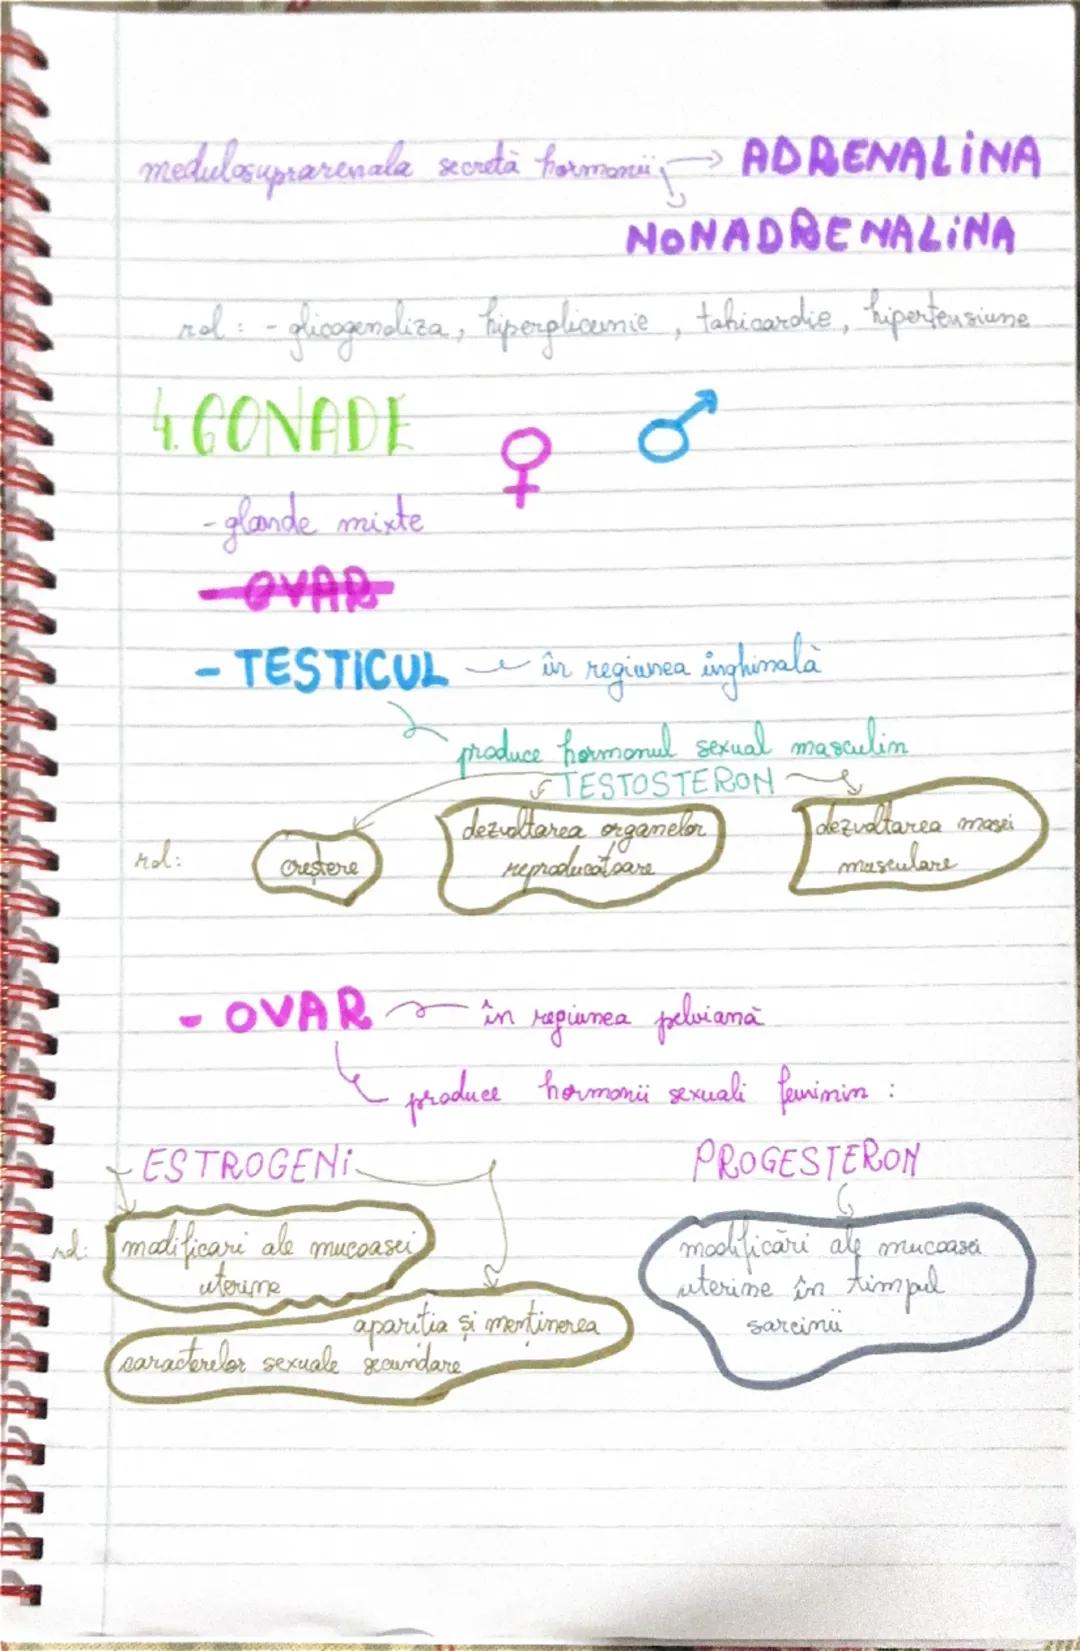 medulosuprarenala secretă hormonii → ADRENALINA
NONADRENALINA
rol: - glicogenoliza, hiperglicemie, tahicardie, hipertensiune
4. GONADE ♀ ♂
- glande mixte
- OVAR
- TESTICUL în regiunea inghinală
produce hormonul sexual masculin
TESTOSTERON
rol: creștere dezvoltarea organelor reproducătoare dezvoltarea masei musculare
- OVAR în regiunea pelviană
produce hormonii sexuali feminin :
ESTROGENI PROGESTERON
rol: modificari ale mucoasei
uterine
aparitia și menținerea
caracterelor sexuale secundare
modificări ale mucoasei
uterine în timpul
sarcinii